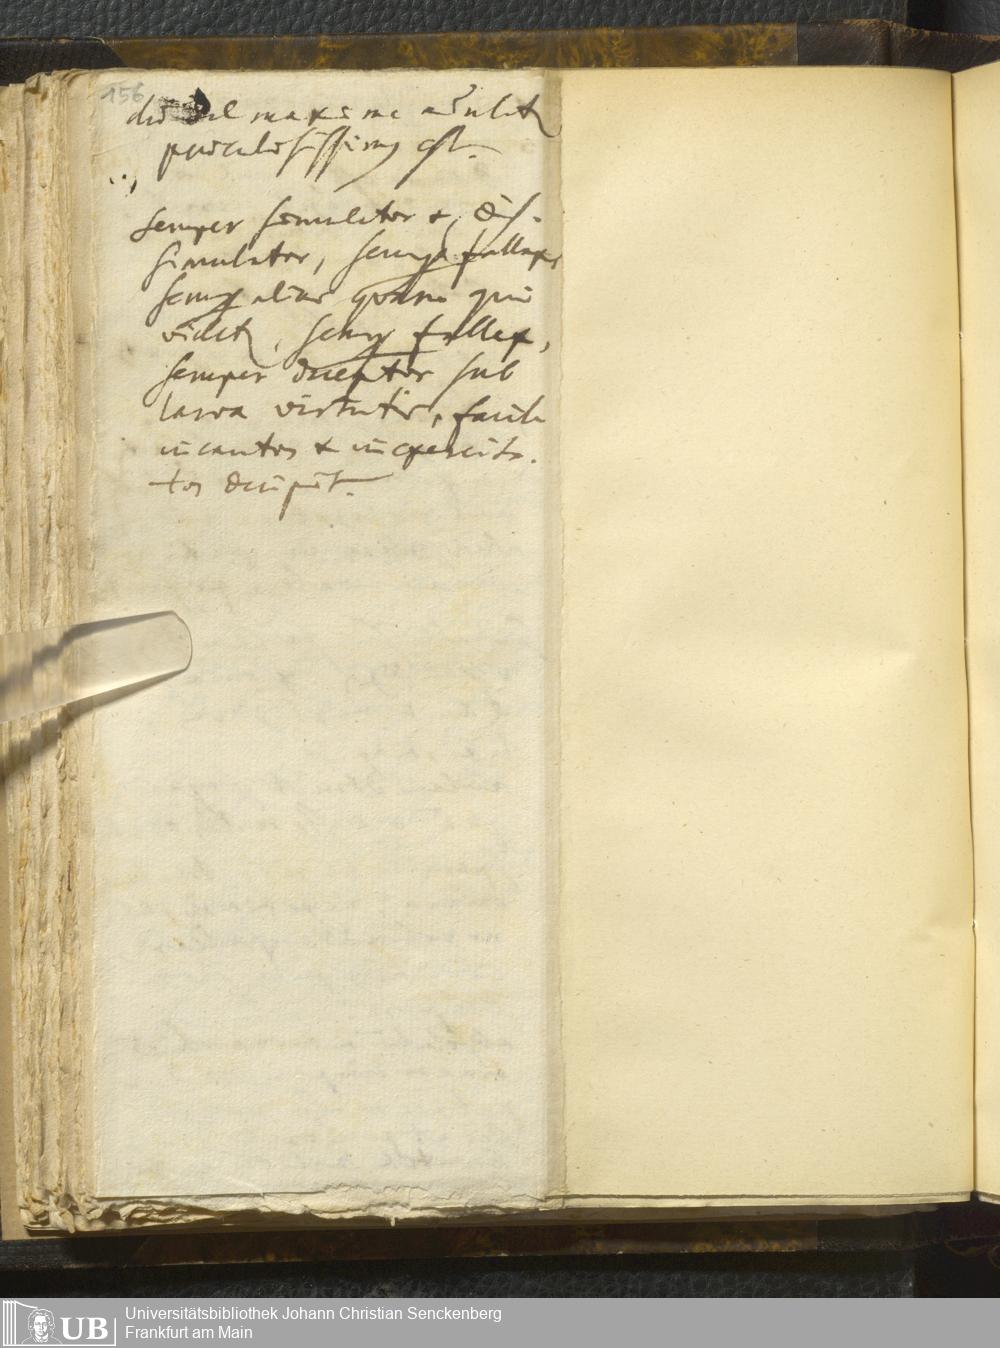 156
vel maxime
periculosissimus est.
semper simulator & dis-
simulator, semper fallax,
semper alius quam qui
videtur, semper fallax,
semper deceptor sub
larva virtutis, facile
incautos & inexercita-
tos decipit.
UB
Universitätsbibliothek Johann Christian Senckenberg
Frankfurt am Main